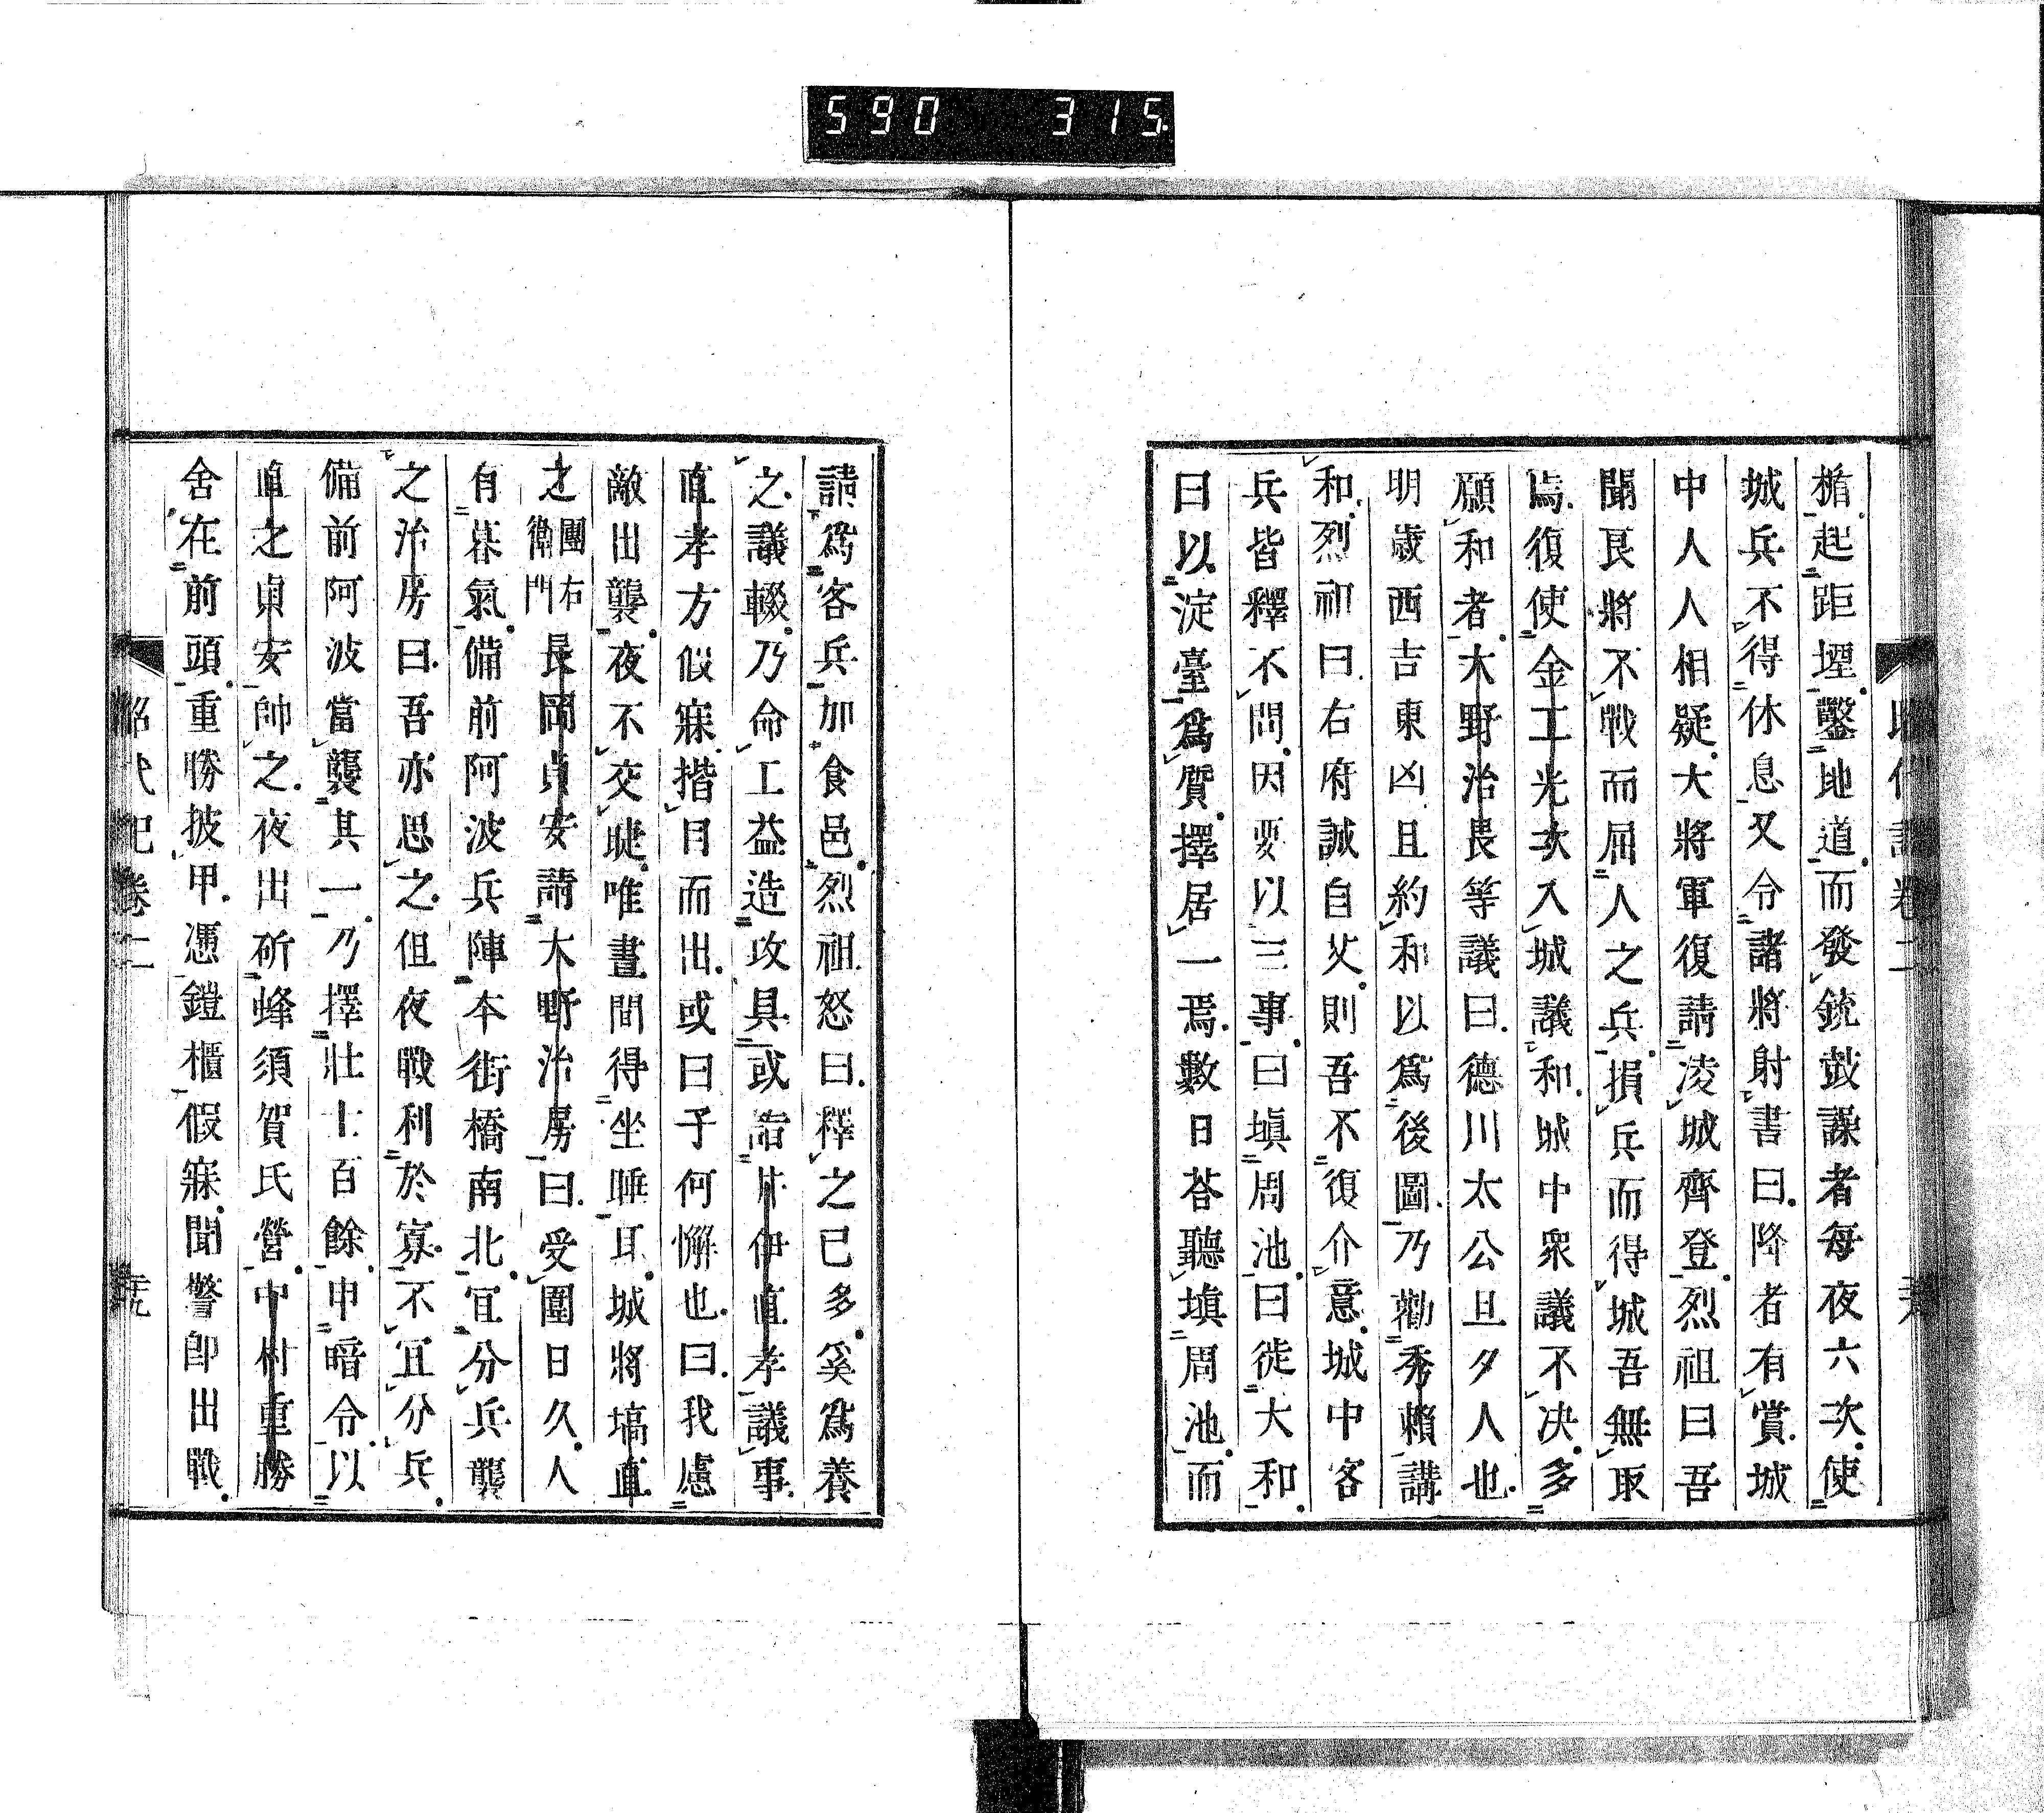 590 315
楯起距堙鑿地道而發銃鼓譟者每夜六次使
城兵不得休息又令諸將射書曰降者有賞城
中人人相疑大將軍復請凌城齊登烈祖曰吾
聞良將不戰而屈人之兵損兵而得城吾無取
焉復使金工光次入城議和城中眾議不決多
願和者大野治長等議曰德川太公旦夕人也
明歲西吉東凶且約和以爲後圖乃勸秀賴講
和烈祖曰右府誠自艾則吾不復介意城中客
兵皆釋不問因要以三事曰塡周池曰徙大和
曰以淀臺爲質擇居一焉數日荅聽塡周池而
請爲客兵加食邑烈祖怒曰釋之已多奚爲養
之議輟乃命工益造攻具或詣片伊直孝議事
直孝方假寐揩目而出或曰子何懈也曰我慮
敵出襲夜不交睫唯晝間得坐睡耳城將塙直
之團右衛門長岡貞安請大野治房曰受圍日久人
有暮氣備前阿波兵陣本街橋南北宜分兵襲
之治房曰吾亦思之但夜戰利於寡不宜分兵
備前阿波當襲其一乃擇壯士百餘申暗令以
直之貞安帥之夜出斫蜂須賀氏營中村重勝
舍在前頭重勝披甲憑鎧櫃假寐聞警卽出戰
昭代記卷二